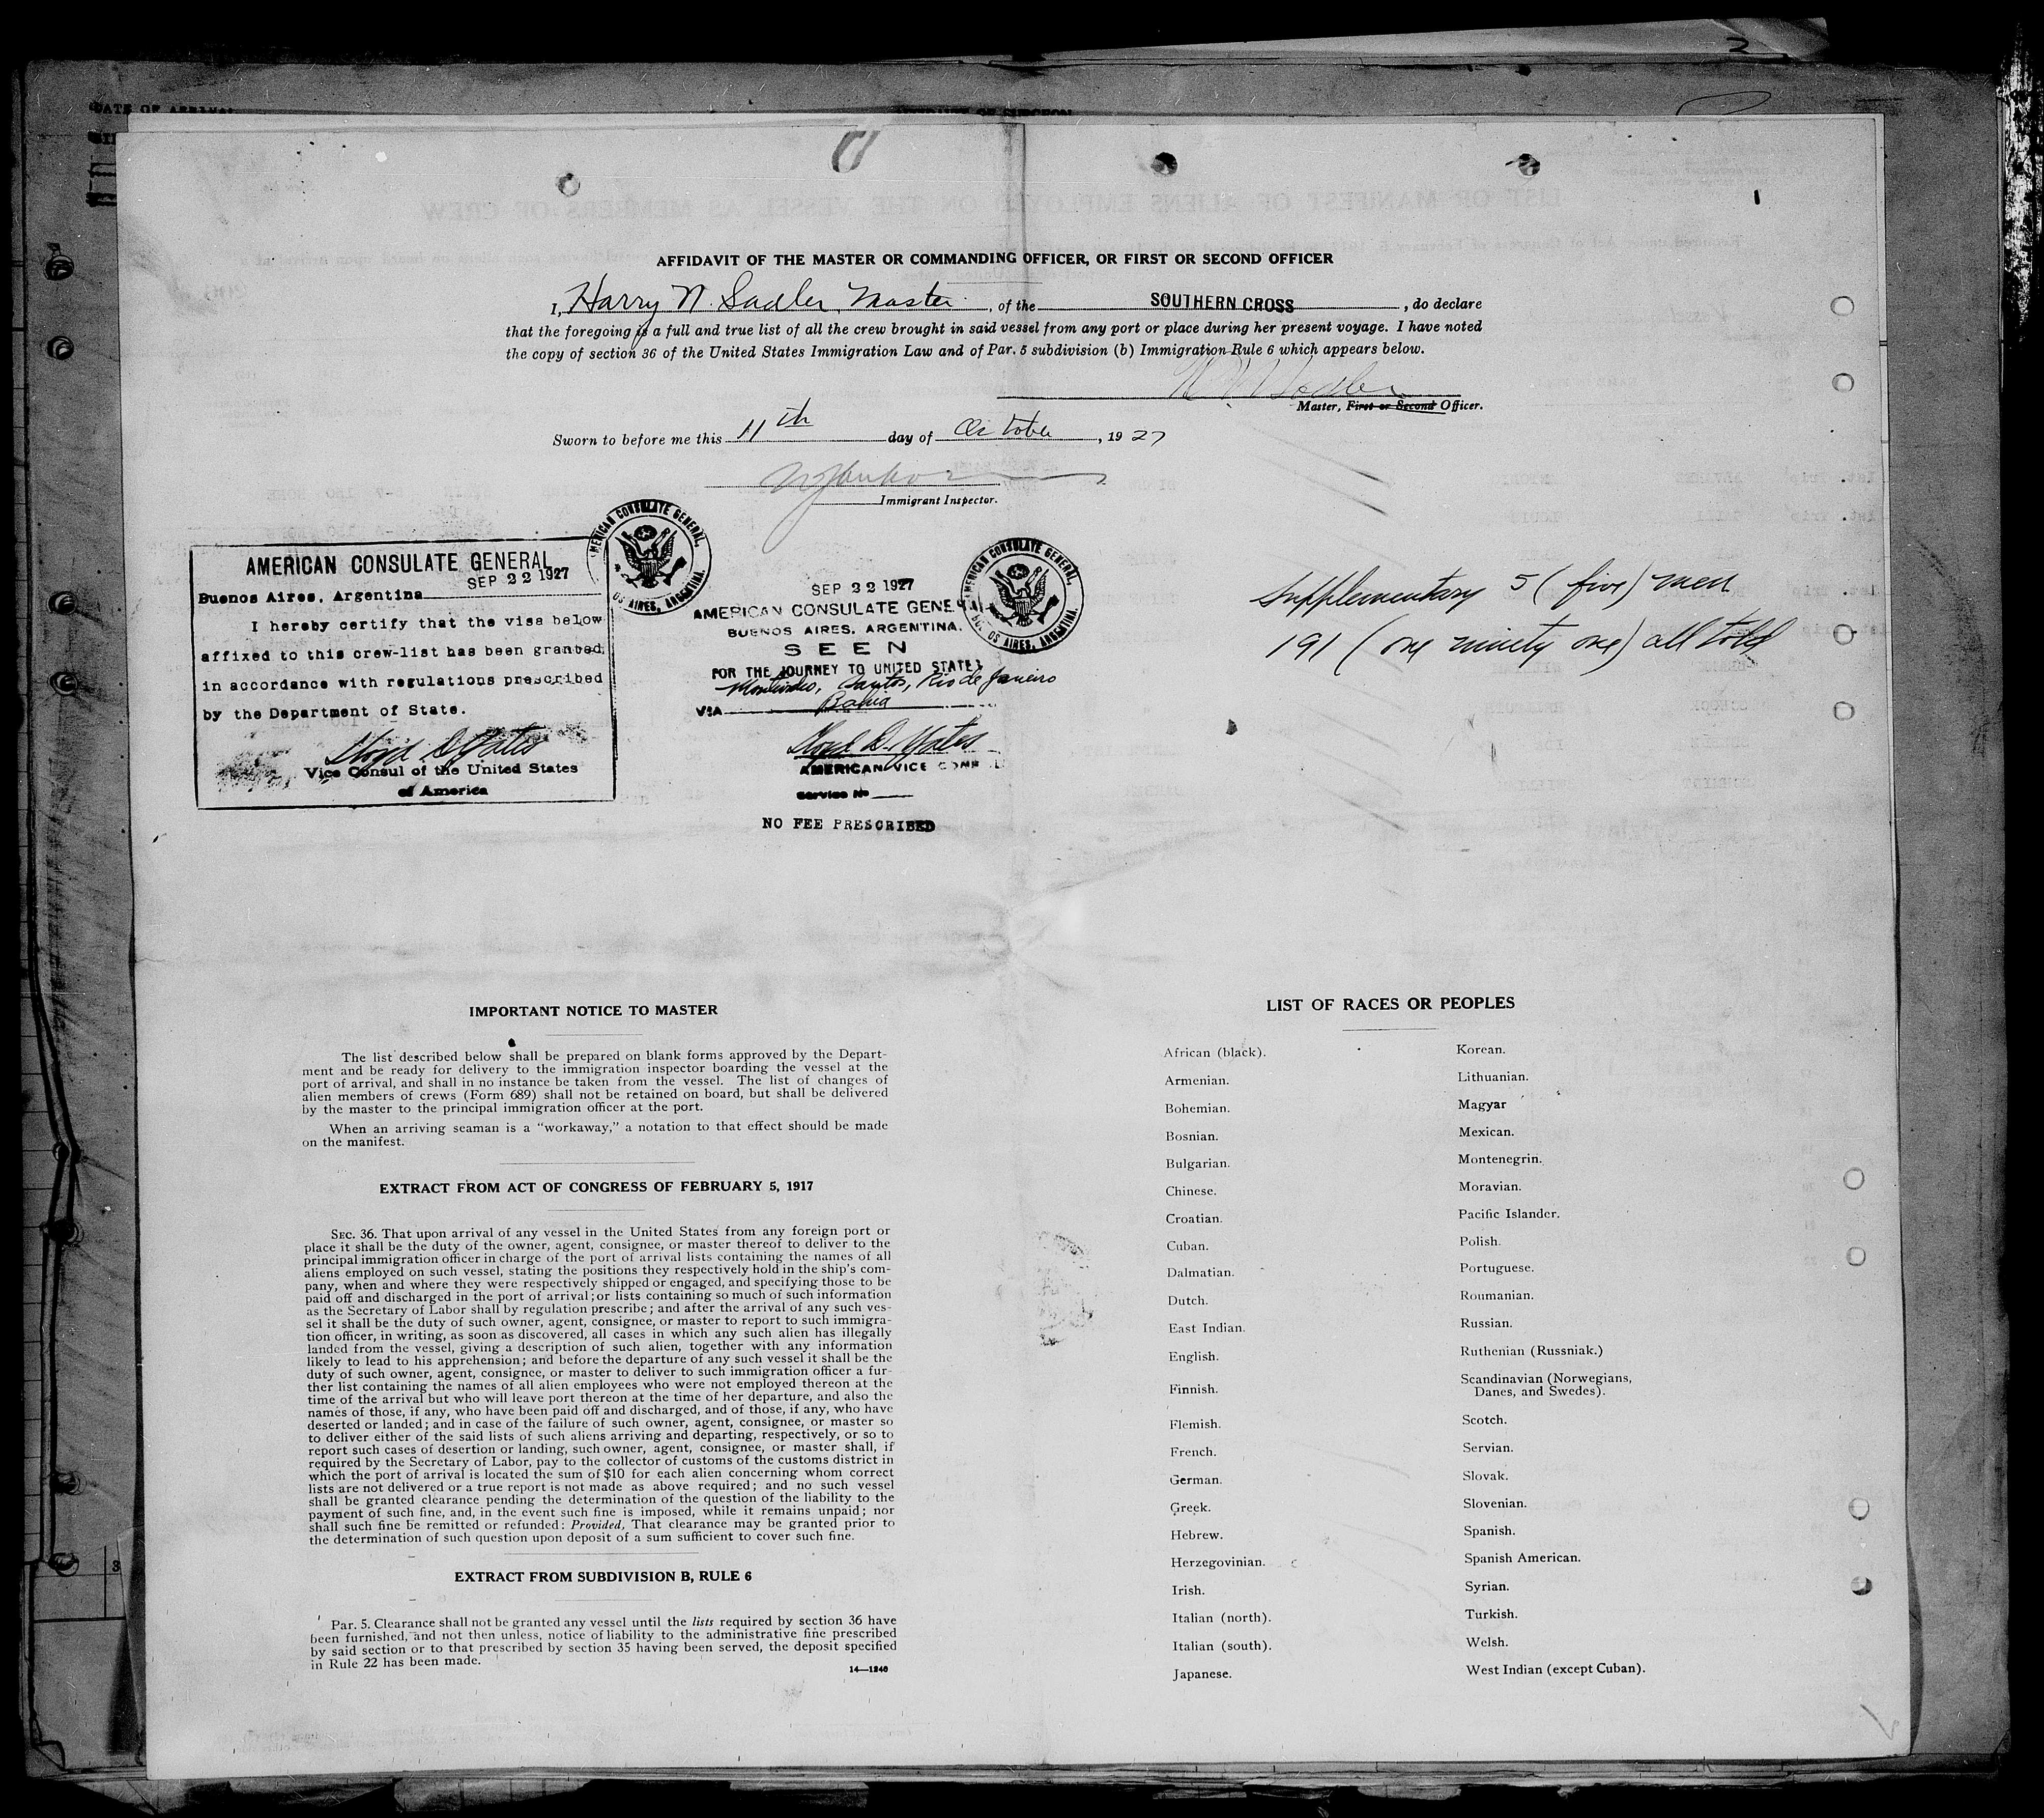 2
DATE OF ARRIVAL
AFFIDAVIT OF THE MASTER OR COMMANDING OFFICER, OR FIRST OR SECOND OFFICER
I, Harry N. Sadler, Master, of the SOUTHERN CROSS, do declare
that the foregoing is a full and true list of all the crew brought in said vessel from any port or place during her present voyage. I have noted
the copy of section 36 of the United States Immigration Law and of Par. 5 subdivision (b) Immigration Rule 6 which appears below.
Sadler
Master, First or Second Officer.
Sworn to before me this 11th day of October, 1927
Immigrant Inspector.
AMERICAN CONSULATE GENERAL
SEP 22 1927
Buenos Aires, Argentina
I hereby certify that the visa below
affixed to this crew-list has been granted
in accordance with regulations prescribed
by the Department of State.
Lloyd D. Yates
Vice Consul of the United States
of America
AMERICAN CONSULATE GENERAL,
BUENOS AIRES, ARGENTINA.
SEP 22 1927
AMERICAN CONSULATE GENERAL
BUENOS AIRES, ARGENTINA.
SEEN
FOR THE JOURNEY TO UNITED STATES
Montevideo, Santos, Rio de Janeiro
VIA Bahia
Lloyd D. Yates
AMERICAN VICE CONSUL
Service No
NO FEE PRESCRIBED
AMERICAN CONSULATE GENERAL,
BUENOS AIRES, ARGENTINA.
Supplementary 5 (five) men
191 (one ninety one) all told
IMPORTANT NOTICE TO MASTER
The list described below shall be prepared on blank forms approved by the Depart-
ment and be ready for delivery to the immigration inspector boarding the vessel at the
port of arrival, and shall in no instance be taken from the vessel. The list of changes of
alien members of crews (Form 689) shall not be retained on board, but shall be delivered
by the master to the principal immigration officer at the port.
When an arriving seaman is a "workaway," a notation to that effect should be made
on the manifest.
EXTRACT FROM ACT OF CONGRESS OF FEBRUARY 5, 1917
SEC. 36. That upon arrival of any vessel in the United States from any foreign port or
place it shall be the duty of the owner, agent, consignee, or master thereof to deliver to the
principal immigration officer in charge of the port of arrival lists containing the names of all
aliens employed on such vessel, stating the positions they respectively hold in the ship's com-
pany, when and where they were respectively shipped or engaged, and specifying those to be
paid off and discharged in the port of arrival; or lists containing so much of such information
as the Secretary of Labor shall by regulation prescribe; and after the arrival of any such ves-
sel it shall be the duty of such owner, agent, consignee, or master to report to such immigra-
tion officer, in writing, as soon as discovered, all cases in which any such alien has illegally
landed from the vessel, giving a description of such alien, together with any information
likely to lead to his apprehension; and before the departure of any such vessel it shall be the
duty of such owner, agent, consignee, or master to deliver to such immigration officer a fur-
ther list containing the names of all alien employees who were not employed thereon at the
time of the arrival but who will leave port thereon at the time of her departure, and also the
names of those, if any, who have been paid off and discharged, and of those, if any, who have
deserted or landed; and in case of the failure of such owner, agent, consignee, or master so
to deliver either of the said lists of such aliens arriving and departing, respectively, or so to
report such cases of desertion or landing, such owner, agent, consignee, or master shall, if
required by the Secretary of Labor, pay to the collector of customs of the customs district in
which the port of arrival is located the sum of $10 for each alien concerning whom correct
lists are not delivered or a true report is not made as above required; and no such vessel
shall be granted clearance pending the determination of the question of the liability to the
payment of such fine, and, in the event such fine is imposed, while it remains unpaid; nor
shall such fine be remitted or refunded: Provided, That clearance may be granted prior to
the determination of such question upon deposit of a sum sufficient to cover such fine.
EXTRACT FROM SUBDIVISION B, RULE 6
Par. 5. Clearance shall not be granted any vessel until the lists required by section 36 have
been furnished, and not then unless, notice of liability to the administrative fine prescribed
by said section or to that prescribed by section 35 having been served, the deposit specified
in Rule 22 has been made.
14—1240
LIST OF RACES OR PEOPLES
African (black).
Armenian.
Bohemian.
Bosnian.
Bulgarian.
Chinese.
Croatian.
Cuban.
Dalmatian.
Dutch.
East Indian.
English.
Finnish.
Flemish.
French.
German.
Greek.
Hebrew.
Herzegovinian.
Irish.
Italian (north).
Italian (south).
Japanese.
Korean.
Lithuanian.
Magyar
Mexican.
Montenegrin.
Moravian.
Pacific Islander.
Polish.
Portuguese.
Roumanian.
Russian.
Ruthenian (Russniak.)
Scandinavian (Norwegians,
Danes, and Swedes).
Scotch.
Servian.
Slovak.
Slovenian.
Spanish.
Spanish American.
Syrian.
Turkish.
Welsh.
West Indian (except Cuban).